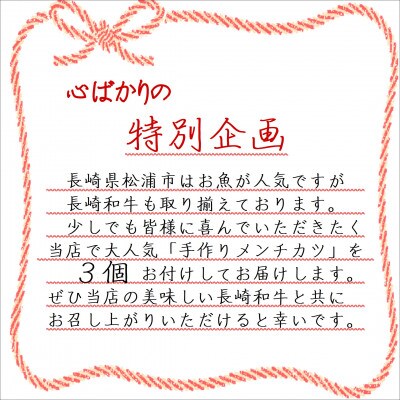 心ばかりの
特別企画
長崎県松浦市はお魚が人気ですが
長崎和牛も取り揃えております。
少しでも皆様に喜んでいただきたく
当店で大人気「手作りメンチカツ」を
３個 お付けしてお届けします。
ぜひ当店の美味しい長崎和牛と共に
お召し上がりいただけると幸いです。